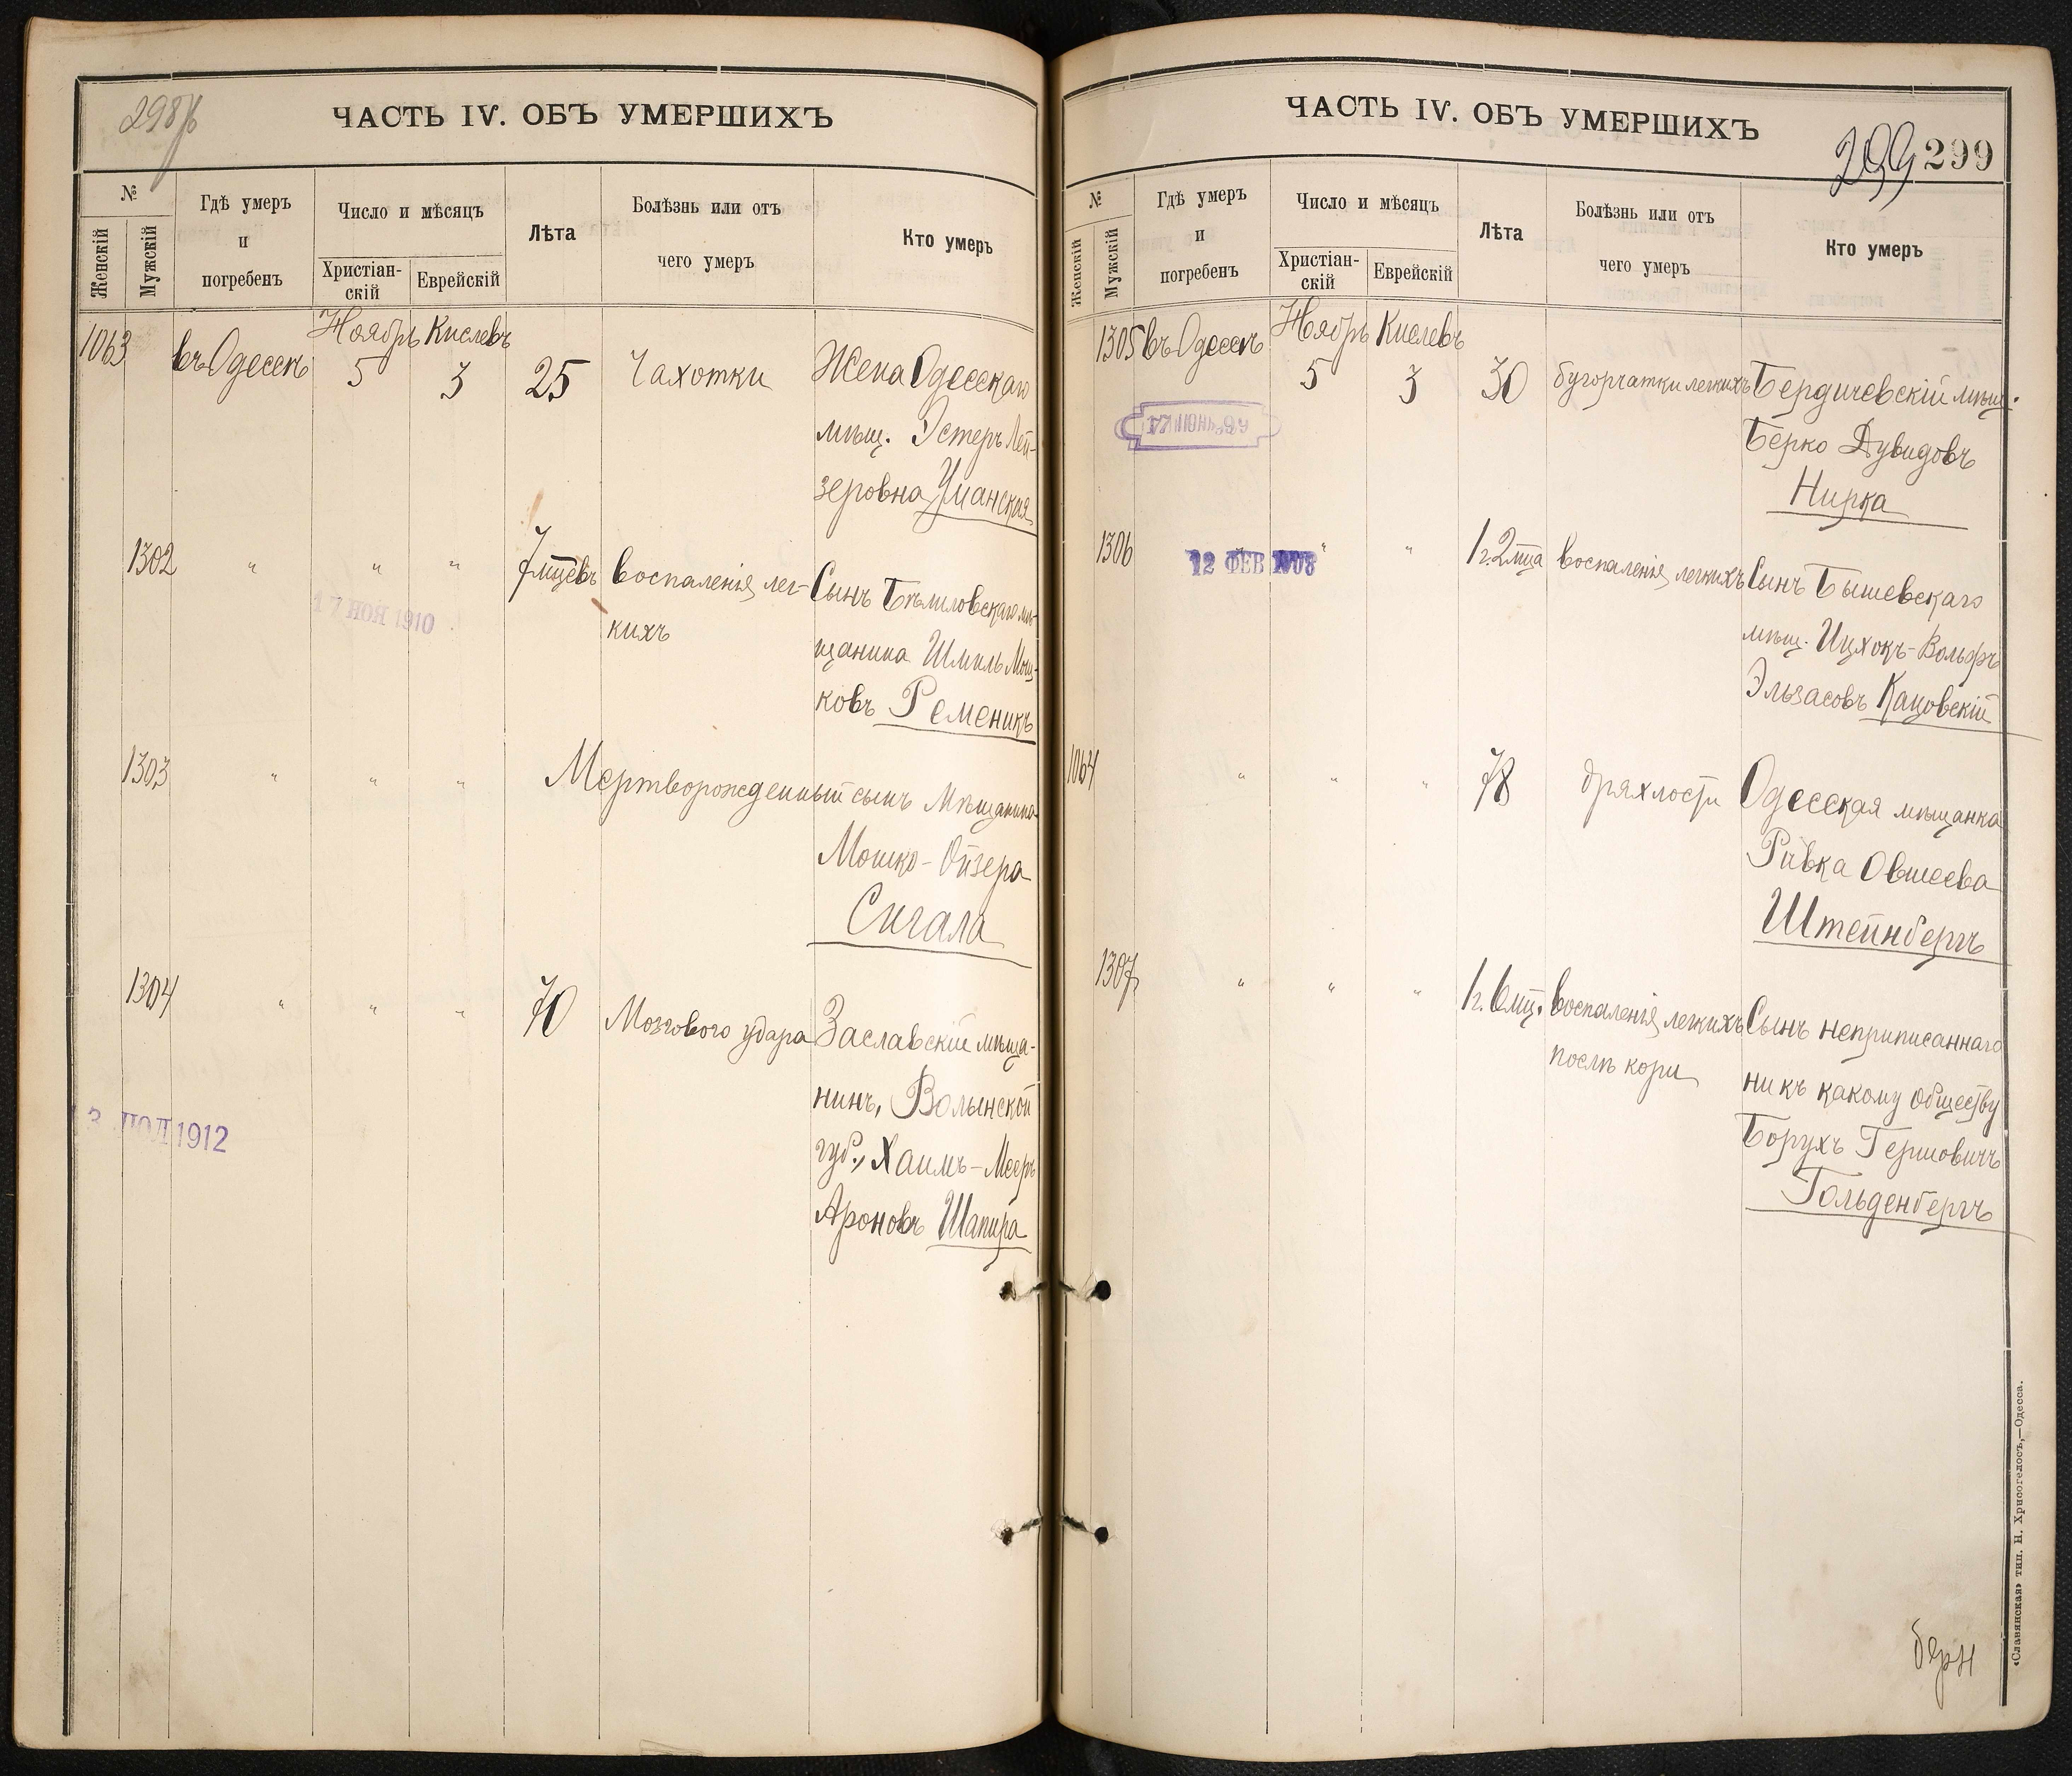 298/б
ЧАСТЬ IV. ОБЪ УМЕРШИХЪ
№
Женскій
Мужскій
Гдѣ умеръ
и
погребенъ
Число и мѣсяцъ
Христіан-
скій
Еврейскій
Лѣта
Болѣзнь или отъ
чего умеръ
Кто умеръ
1063
въ Одессѣ
Ноябрь
5
Кислевъ
3
25
Чахотки
Жена Одесскаго
мѣщ. Эстеръ Лей-
зеровна Уманская
1302
"
"
"
7 мцевъ
воспаленія лег-
кихъ
Сынъ Бѣлиловскаго мѣ-
щанина Шмиль Мош-
ковъ Ременикъ
17 НОЯ 1910
1303
"
"
"
Мертворожденный сынъ Мѣщанина
Мошко-Ойзера
Сигала
1304
"
"
"
70
Мозгового удара
Заславскій мѣща-
нинъ, Волынской
губ., Хаимъ-Мееръ
Ароновъ Шапира
1912
ЧАСТЬ IV. ОБЪ УМЕРШИХЪ
299
299
№
Женскій
Мужскій
Гдѣ умеръ
и
погребенъ
Число и мѣсяцъ
Христіан-
скій
Еврейскій
Лѣта
Болѣзнь или отъ
чего умеръ
Кто умеръ
1305
въ Одессѣ
Ноябрь
5
Кислевъ
3
30
бугорчатки легкихъ
Бердичевскій мѣщ.
Берко Дувидовъ
Нирка
1306
12 ФЕВ 1908
"
"
1 г. 2 мца
воспаленія легкихъ
Сынъ Бышевскаго
мѣщ. Ицхокъ-Вольфъ
Эльзасовъ Кацовскій
1064
"
"
"
78
дряхлости
Одесская мѣщанка
Ривка Овшеева
Штейнбергъ
1307
"
"
"
1 г. 6 мц.
воспаленія легкихъ
послѣ кори
Сынъ неприписаннаго
ни къ какому обществу
Борухъ Гершовичъ
Гольденбергъ
«Славянская» тип. Н. Хрисогелосъ,—Одесса.